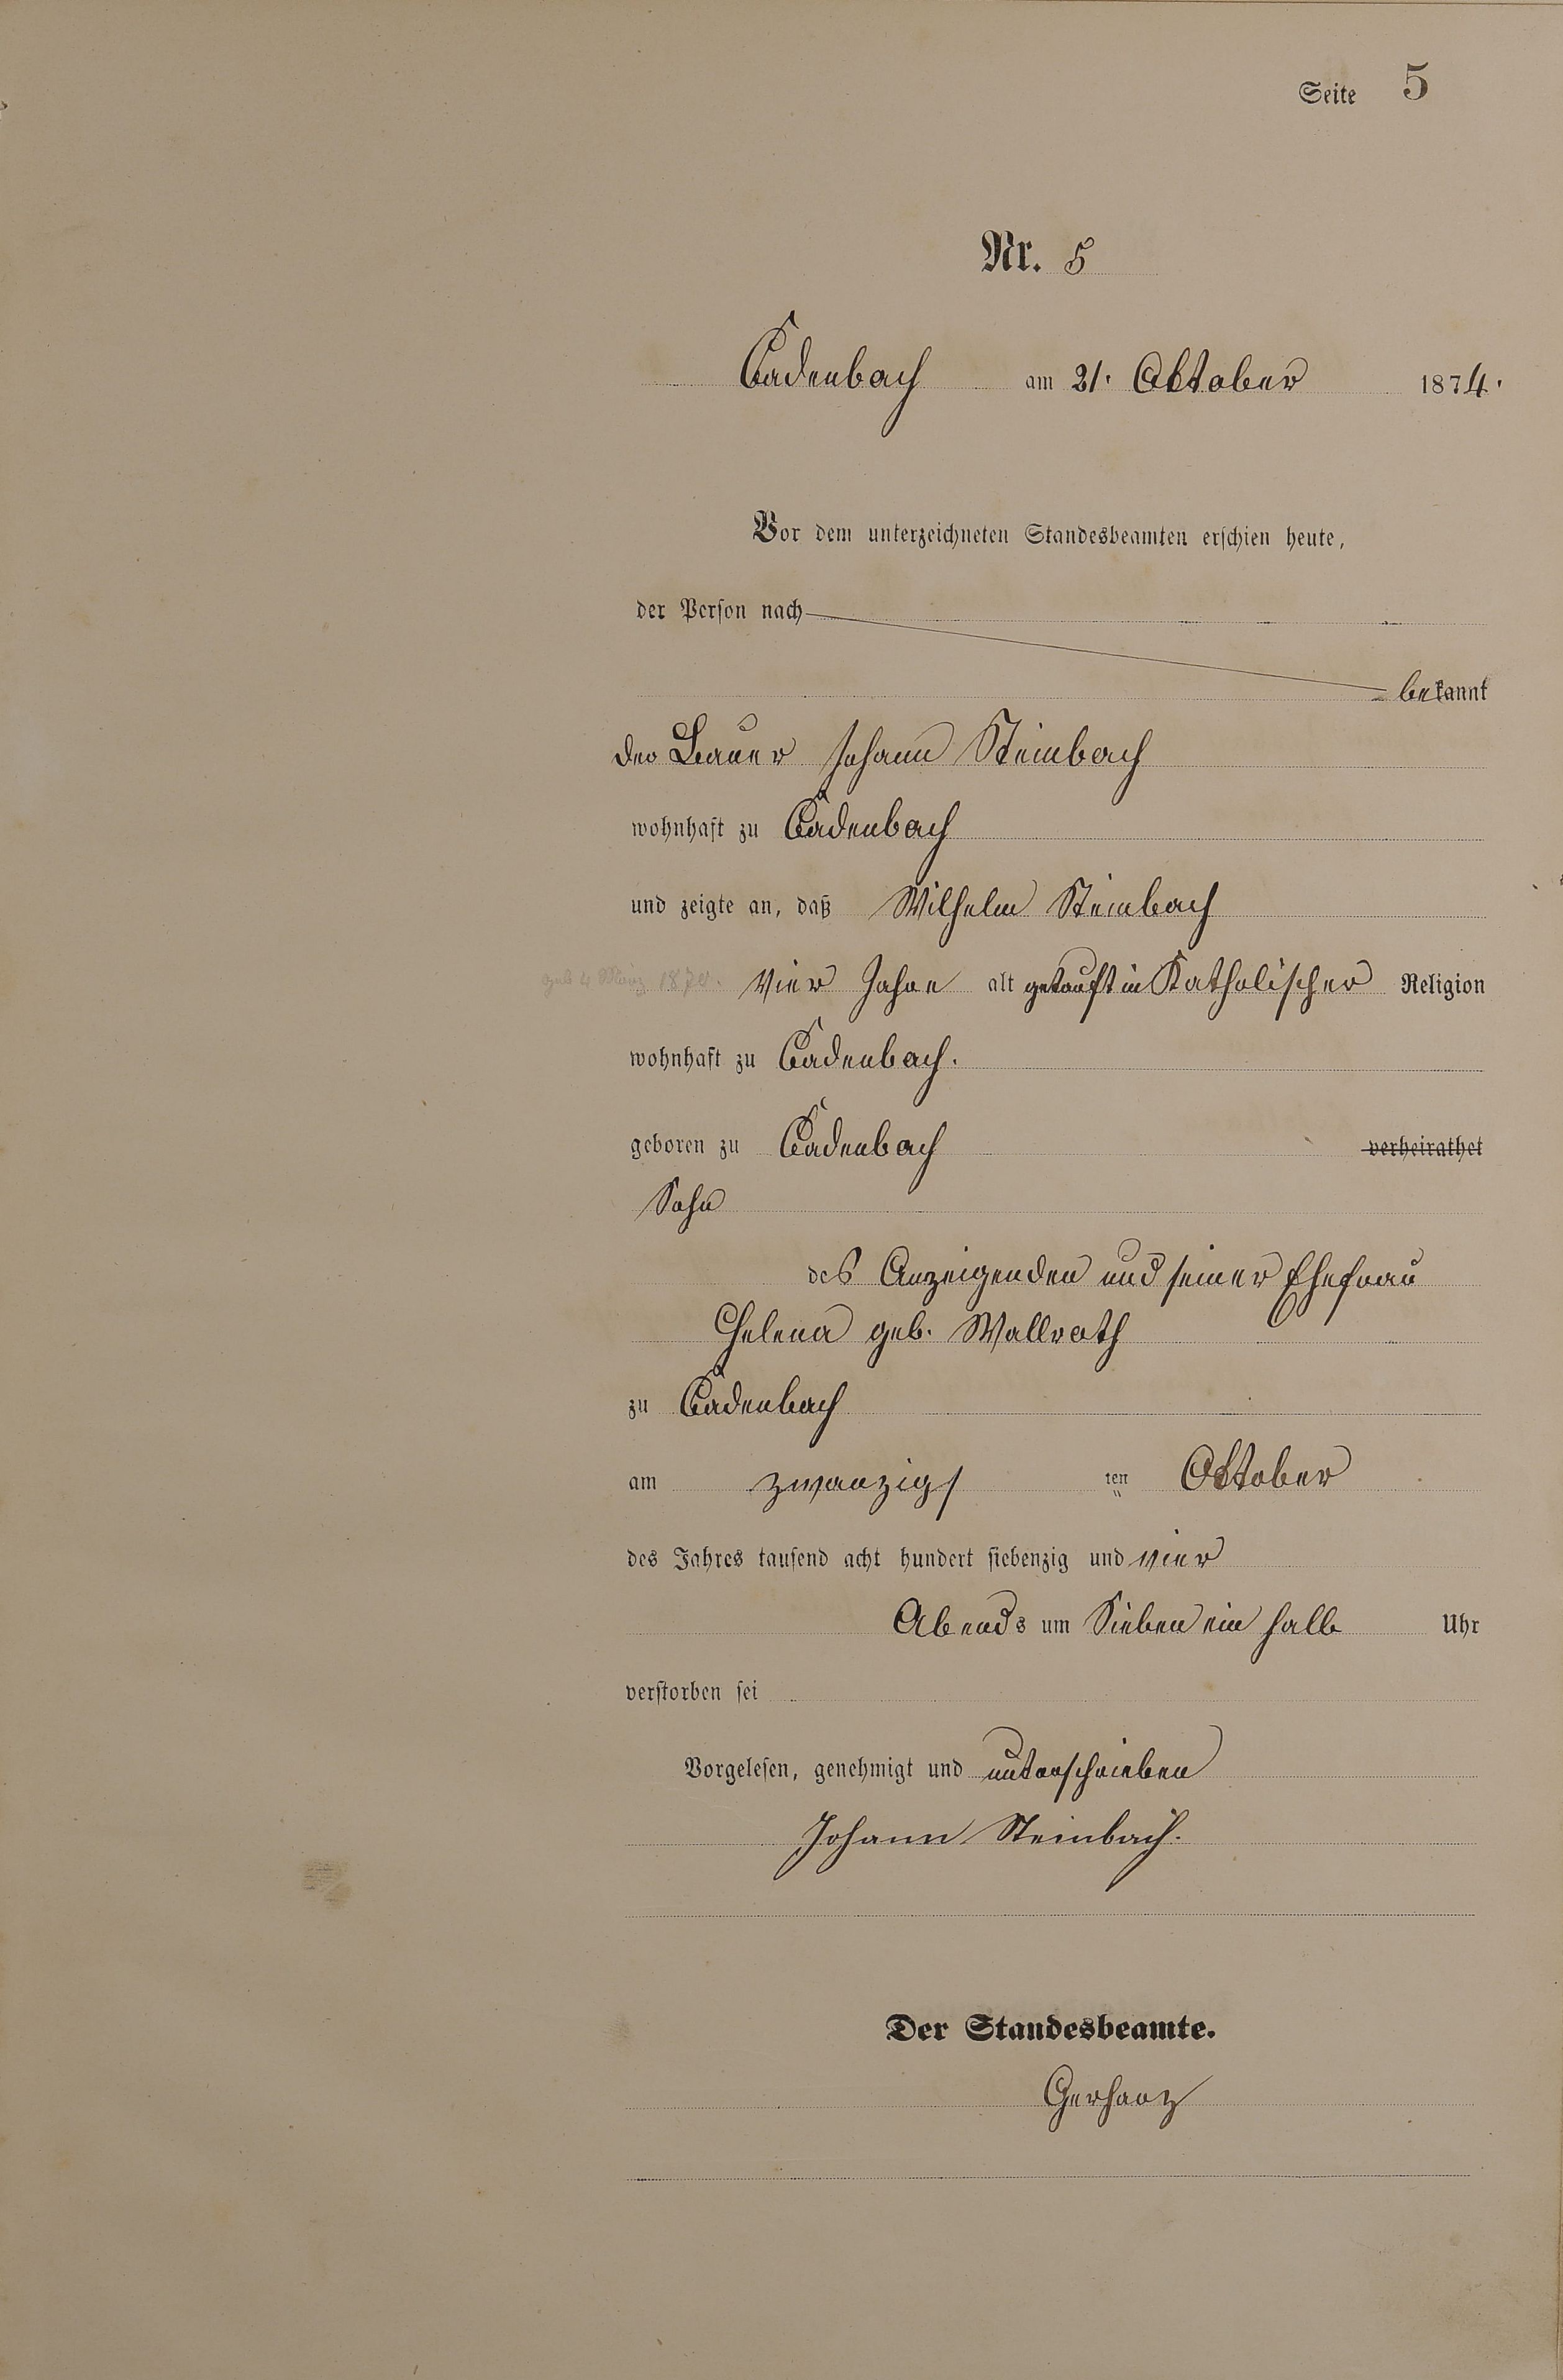 Seite 5
Nr. 5
Cadenbach am 21. Oktober 1874.
Vor dem unterzeichneten Standesbeamten erschien heute,
der Person nach
bekannt
der Bauer Johann Steinbach
wohnhaft zu Cadenbach
und zeigte an, daß Wilhelm Steinbach
geb 4 März 1870. Vier Jahre alt getauft in Katholischer Religion
wohnhaft zu Cadenbach.
geboren zu Cadenbach verheirathet
Sohn
des Anzeigenden und seiner Ehefrau
Helena geb. Wallrath
zu Cadenbach
am zwanzigs ten Oktober
des Jahres tausend acht hundert siebenzig und vier
Abends um Sieben ein halb Uhr
verstorben sei
Vorgelesen, genehmigt und unterschrieben
Johann Steinbach.
Der Standesbeamte.
Gerharz